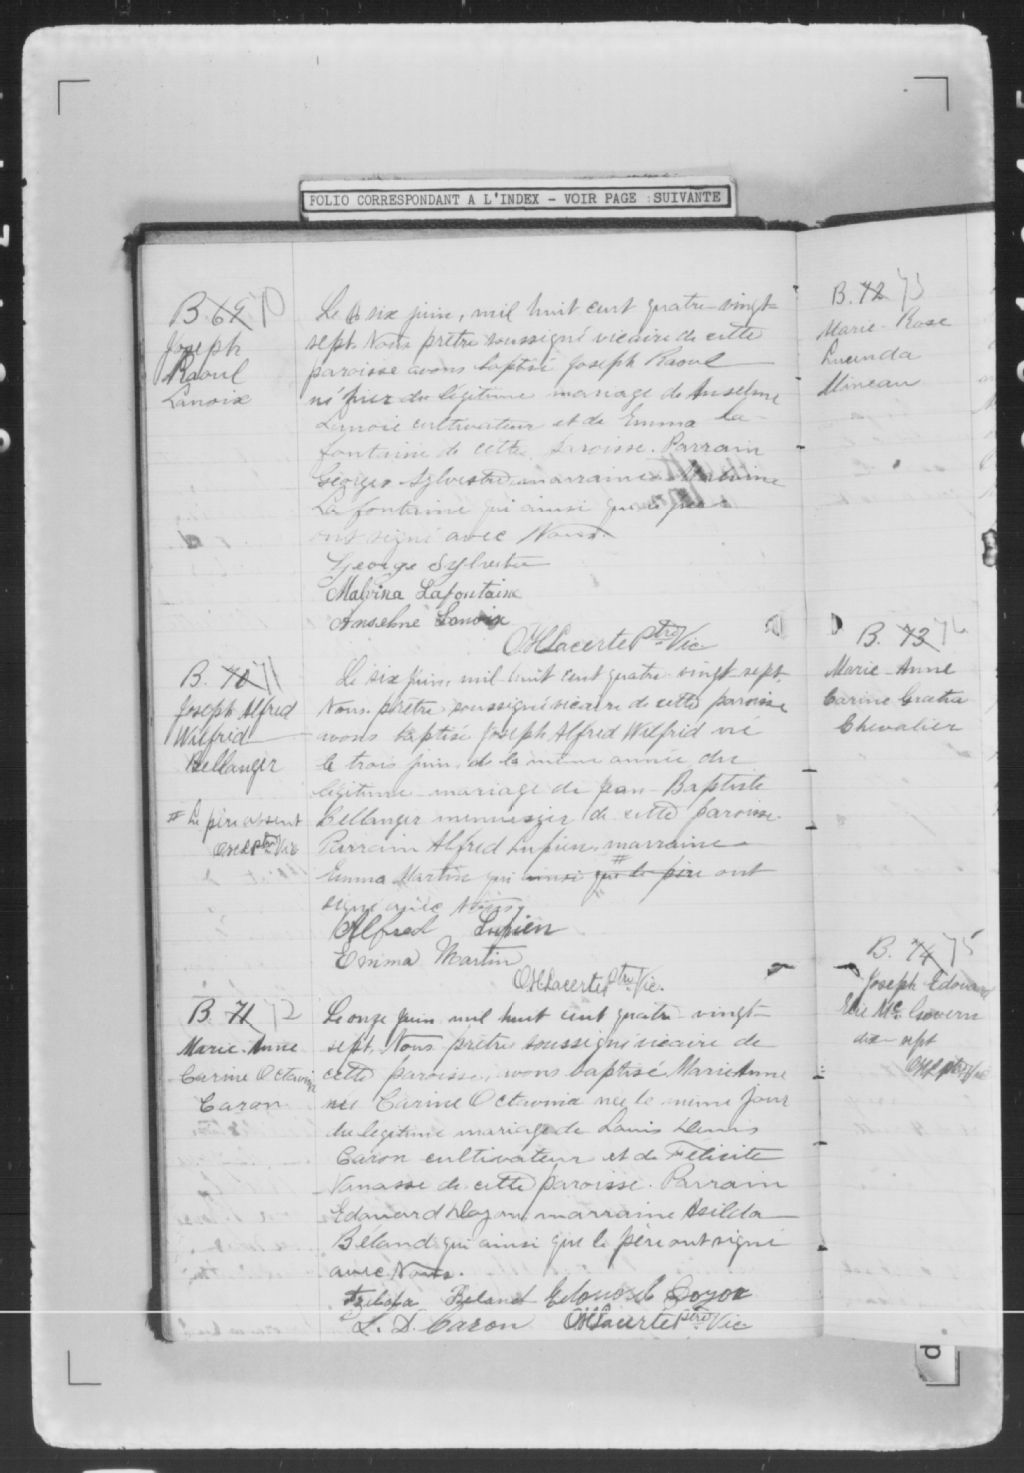 FOLIO CORRESPONDANT A L'INDEX - VOIR PAGE SUIVANTE
B. 69 70
Joseph
Raoul
Lanoix
Le six juin, mil huit cent quatre-vingt-
sept, Nous prêtre soussigné vicaire de cette
paroisse avons baptisé Joseph Raoul
né hier du légitime mariage de Anselme
Lanoix cultivateur et de Emma La-
fontaine de cette paroisse. Parrain
Georges Sylvestre marraine Malvina
Lafontaine qui ainsi que le père
ont signé avec Nous.
George Sylvestre
Malvina Lafontaine
Anselme Lanoix
OHLacerte Ptre Vic
B. 70 71
Joseph Alfred
Wilfrid
Bellanger
# Le père absent
OHL Ptre Vic
Le six juin, mil huit cent quatre-vingt-sept,
Nous prêtre soussigné vicaire de cette paroisse
avons baptisé Joseph Alfred Wilfrid né
le trois juin, de la même année du
légitime mariage de Jean-Baptiste
Bellanger menuisier de cette paroisse.
Parrain Alfred Lupien, marraine
Emma Martin qui ainsi que # le père ont
signé avec Nous.
Alfred Lupien
Emma Martin
OHLacerte Ptre Vic.
B. 71 72
Marie-Anne
Carine Octavine
Caron
Le onze juin mil huit cent quatre-vingt-
sept, Nous prêtre soussigné vicaire de
cette paroisse, avons baptisé Marie Anne
née Carine Octavnia née le même jour
du légitime mariage de Louis Denis
Caron cultivateur et de Félicité
Vanasse de cette paroisse. Parrain
Edouard marraine Asilda
Béland qui ainsi que le père ont signé
avec Nous.
Béland Edouard
L. D. Caron OHLacerte Ptre Vic
B. 72 73
Marie-Rose
Lucinda
Mineau
B. 73 74
Marie-Anne
Carine
Chevalier
B. 74 75
Joseph Edouard
Mc Govern
dix-sept
OHL Ptre Vic